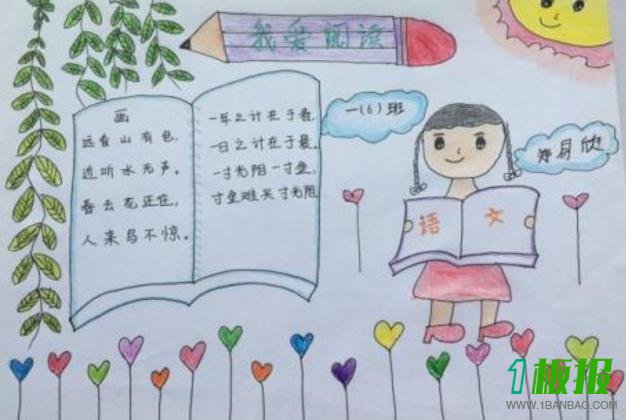 我爱阅读
画
远看山有色,
近听水无声。
春去花还在,
人来鸟不惊。
一年之计在于春,
一日之计在于晨。
一寸光阴一寸金,
寸金难买寸光阴
一(6)班
月欣
语文
1板报
WWW.1BANBAO.COM